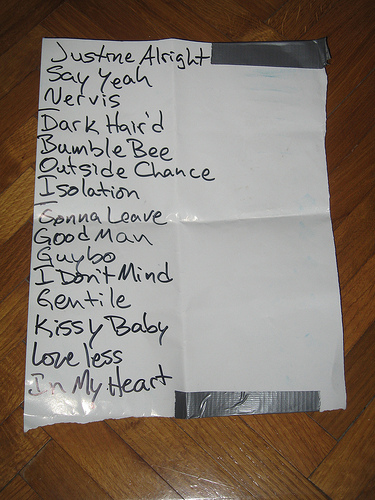 Justine Alright
Say Yeah
Nervis
Dark Hair'd
Bumble Bee
Outside Chance
Isolation
Gonna Leave
Good Man
Guybo
I Don't Mind
Gentile
Kissy Baby
Loveless
In My Heart